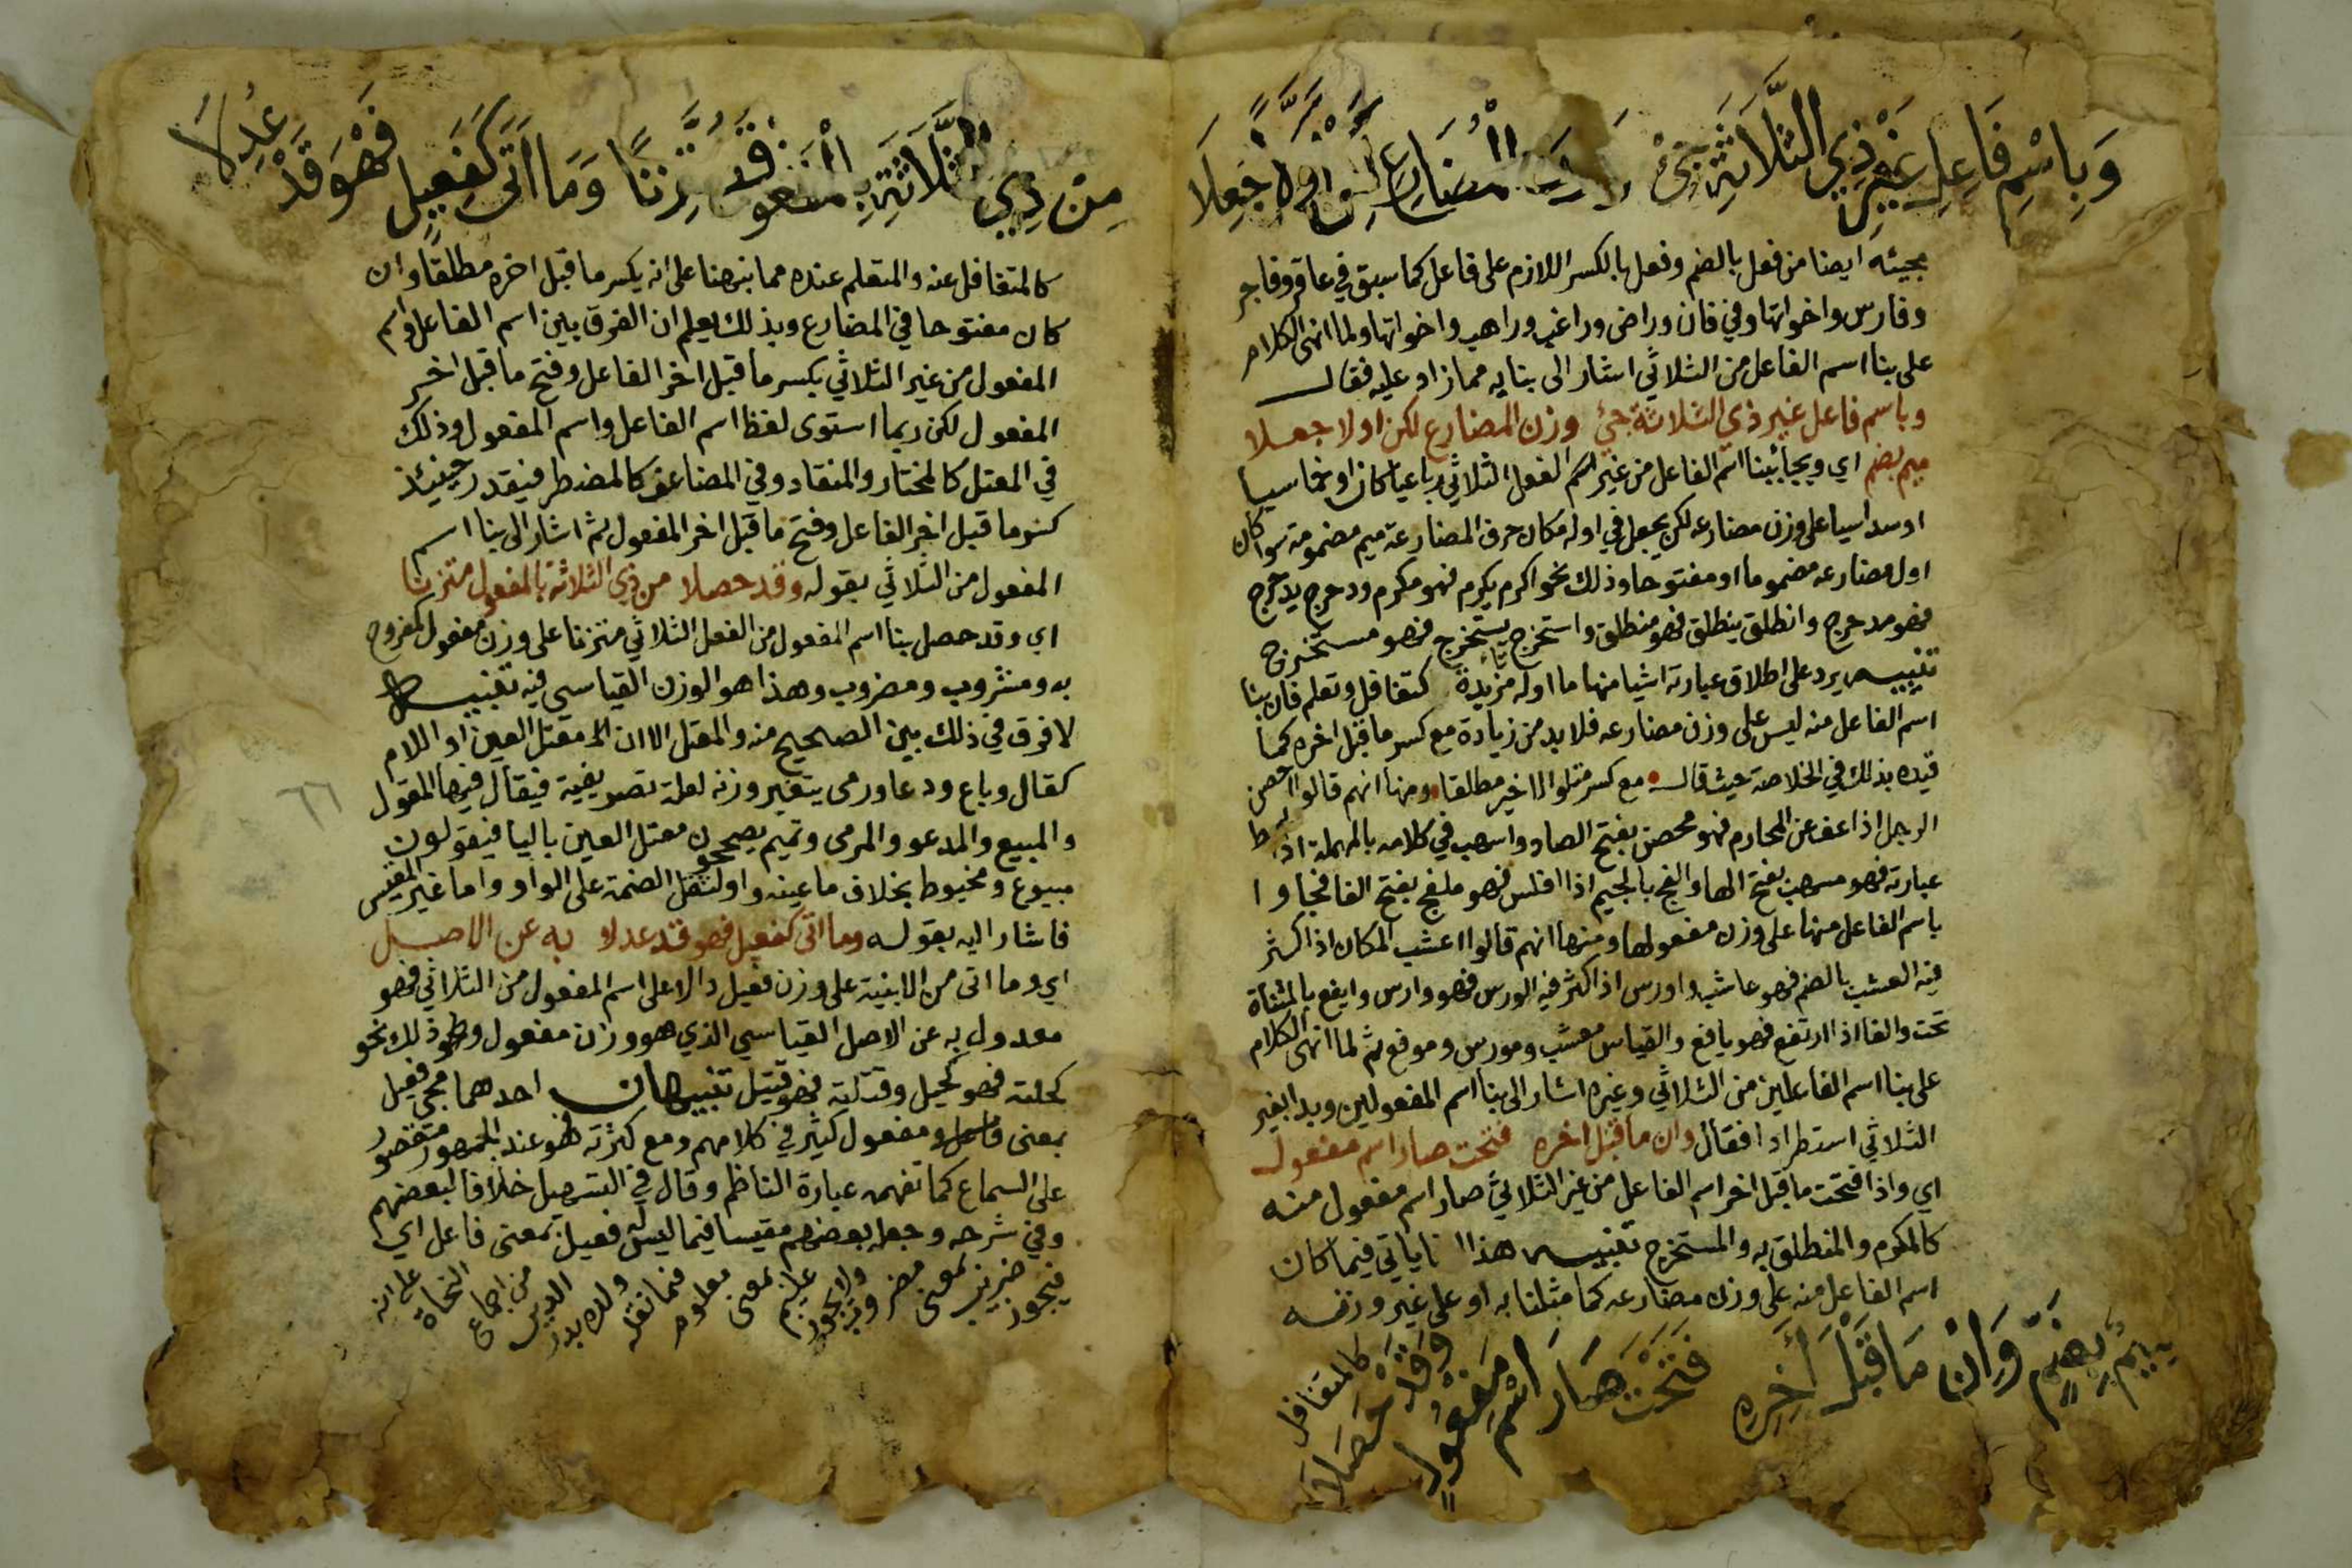 وَبِاسْمِ فَاعِلِ غَيْرِ ذِي الثَّلَاثَةِ جِئْ المُضَارِعِ لكِنْ أَوَّلًا جُعِلَا
مجيئه ايضا من فعل بالضم وفعل بالكسر اللازم على فاعل كما سبق في عاقر وفاجر
وفارس واخواتها وفي فان وراض وراغب وراهب واخواتها ولما انهى الكلام
على بنا اسم الفاعل من الثلاثي اشار الى بنايه مما زاد عليه فقال
وباسم فاعل غير ذي الثلاثة جئ وزن المضارع لكن اولا جعلا
ميم بضم اي ويجيا ببنا اسم الفاعل من غير الفعل الثلاثي رباعيا كان او خماسيا
او سداسيا على وزن مضارعه لكن يجعل في اوله مكان حرف المضارعة ميم مضمومة سوا كان
اول مضارعه مضموما او مفتوحا وذلك نحو اكرم يكرم فهو مكرم ودحرج يدحرج
فهو مدحرج وانطلق ينطلق فهو منطلق واستخرج يستخرج فهو مستخرج
تنبيه يرد على اطلاق عبارته اشيا منها ما اوله تا مزيدة كتغافل وتعلم فان بنا
اسم الفاعل منه ليس على وزن مضارعه فلا بد من زيادة مع كسر ما قبل اخره كما
قيده بذلك في الخلاصة حيث قال مع كسر متلو الاخير مطلقا ومنها انهم قالوا احصن
الرجل اذا عف عن المحارم فهو محصن بفتح الصاد واسهب في كلامه بالمهملة اذا
عبارته فهو مسهب بفتح الها والفج بالجيم اذا افلس فهو ملفج بفتح الفا فجاوا
باسم الفاعل منها على وزن مفعولها ومنها انهم قالوا اعشب المكان اذا كثر
فيه العشب بالضم فهو عاشب واورس اذا كثر فيه الورس فهو وارس وايفع بالمثناة
تحت والفا اذا ارتفع فهو يافع والقياس معشب ومورس وموفع ثم لما انهى الكلام
على بنا اسم الفاعلين من الثلاثي وغيره اشار الى بنا اسم المفعولين وبدا بغير
الثلاثي استطرادا فقال وان ما قبل اخره فتحت صار اسم مفعول
اي واذا فتحت ما قبل اخر اسم الفاعل من غير الثلاثي صار اسم مفعول منه
كالمكرم والمنطلق به والمستخرج تنبيه هذا ياتي فيما كان
اسم الفاعل منه على وزن مضارعه كما مثلنا به او على غير وزنه
كالمتغافل
بِضَمٍّ وَإِنْ مَا قَبْلَ آخِرِهِ فَتَحْتَ صَارَ اسْمَ مَفْعُولٍ وَقَدْ حَصَلَا
مِنْ ذِي الثَّلَاثَةِ مُتَّزِنًا وَمَا أَتَى كَفَعِيلٍ فَهْوَ قَدْ عُدِلَا
كالمتغافل عنه والمتعلم عنده مما نبهنا على انه يكسر ما قبل اخره مطلقا وان
كان مفتوحا في المضارع وبذلك يعلم ان الفرق بين اسم الفاعل واسم
المفعول من غير الثلاثي بكسر ما قبل اخر الفاعل وفتح ما قبل اخر
المفعول لكن ربما استوى لفظا اسم الفاعل واسم المفعول وذلك
في المعتل كالمختار والمنقاد وفي المضاعف كالمضطر فيقدر حينئذ
كسر ما قبل اخر الفاعل وفتح ما قبل اخر المفعول ثم اشار الى بنا اسم
المفعول من الثلاثي بقوله وقد حصلا من ذي الثلاثة بالمفعول متزنا
اي وقد حصل بنا اسم المفعول من الفعل الثلاثي متزنا على وزن مفعول كمفروح
به ومشروب ومضروب وهذا هو الوزن القياسي فيه تنبيه
لا فرق في ذلك بين الصحيح منه والمعتل الا ان معتل العين او اللام
كقال وباع ودعا ورمى يتغير وزنه لعلة تصريفية فيقال فيها المقول
والمبيع والمدعو والمرمى وتميم يصححون معتل العين باليا فيقولون
مبيوع ومخيوط بخلاف ما عينه واو لثقل الضمة على الواو واما غير المقيس
فاشار اليه بقوله وما اتى كفعيل فهو قد عدلا به عن الاصل
اي وما اتى من الابنية على وزن فعيل دالا على اسم المفعول من الثلاثي فهو
معدول به عن الاصل القياسي الذي هو وزن مفعول وذلك نحو
كحلته فهو كحيل وقتلته فهو قتيل تنبيهان احدهما مجي فعيل
بمعنى مفعول كثير في كلامهم ومع كثرته فهو عند الجمهور مقصور
على السماع كما تفهمه عبارة الناظم وقال في التسهيل خلافا لبعضهم
وفي شرحه وجعله بعضهم مقيسا فيما ليس له فعيل بمعنى فاعل اي
فيجوز ضريب بمعنى مضروب ولا يجوز عليم بمعنى معلوم فما نقله ولده بدر الدين من اجماع النحاة على انه
٦٦